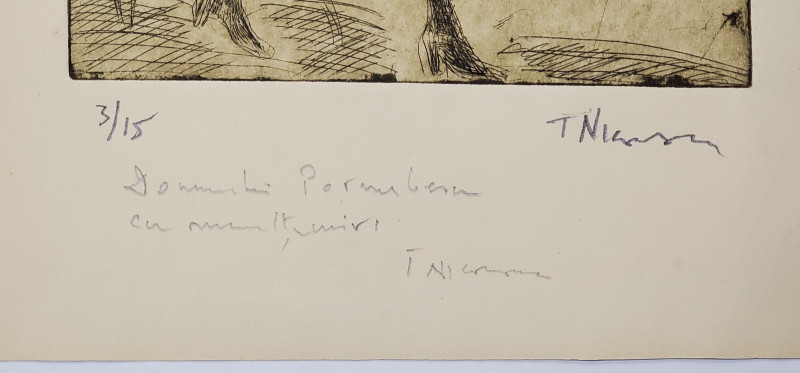 3/15
T Nicorescu
Domnului Porumbescu
cu mulțumiri
T Nicorescu